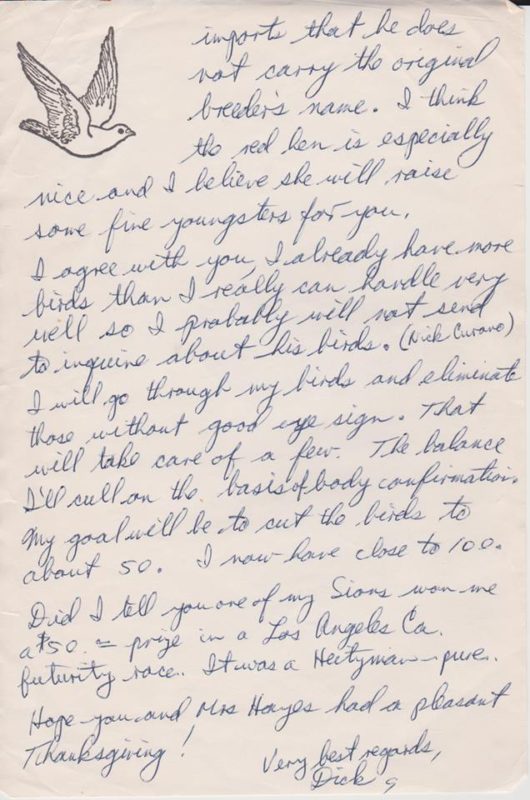 imports that he does
not carry the original
breeder's name. I think
the red hen is especially
nice and I believe she will raise
some fine youngsters for you.
I agree with you, I already have more
birds than I really can handle very
well so I probably will not send
to inquire about his birds. (Nick Curano)
I will go through my birds and eliminate
those without good eye sign. That
will take care of a few. The balance
I'll cull on the basis of body confirmation.
My goal will be to cut the birds to
about 50. I now have close to 100.
Did I tell you one of my Sions won me
a $50.= prize in a Los Angeles Ca.
futurity race. It was a Heitzman-pure.
Hope you and Mrs Hayes had a pleasant
Thanksgiving!
Very best regards,
Dick